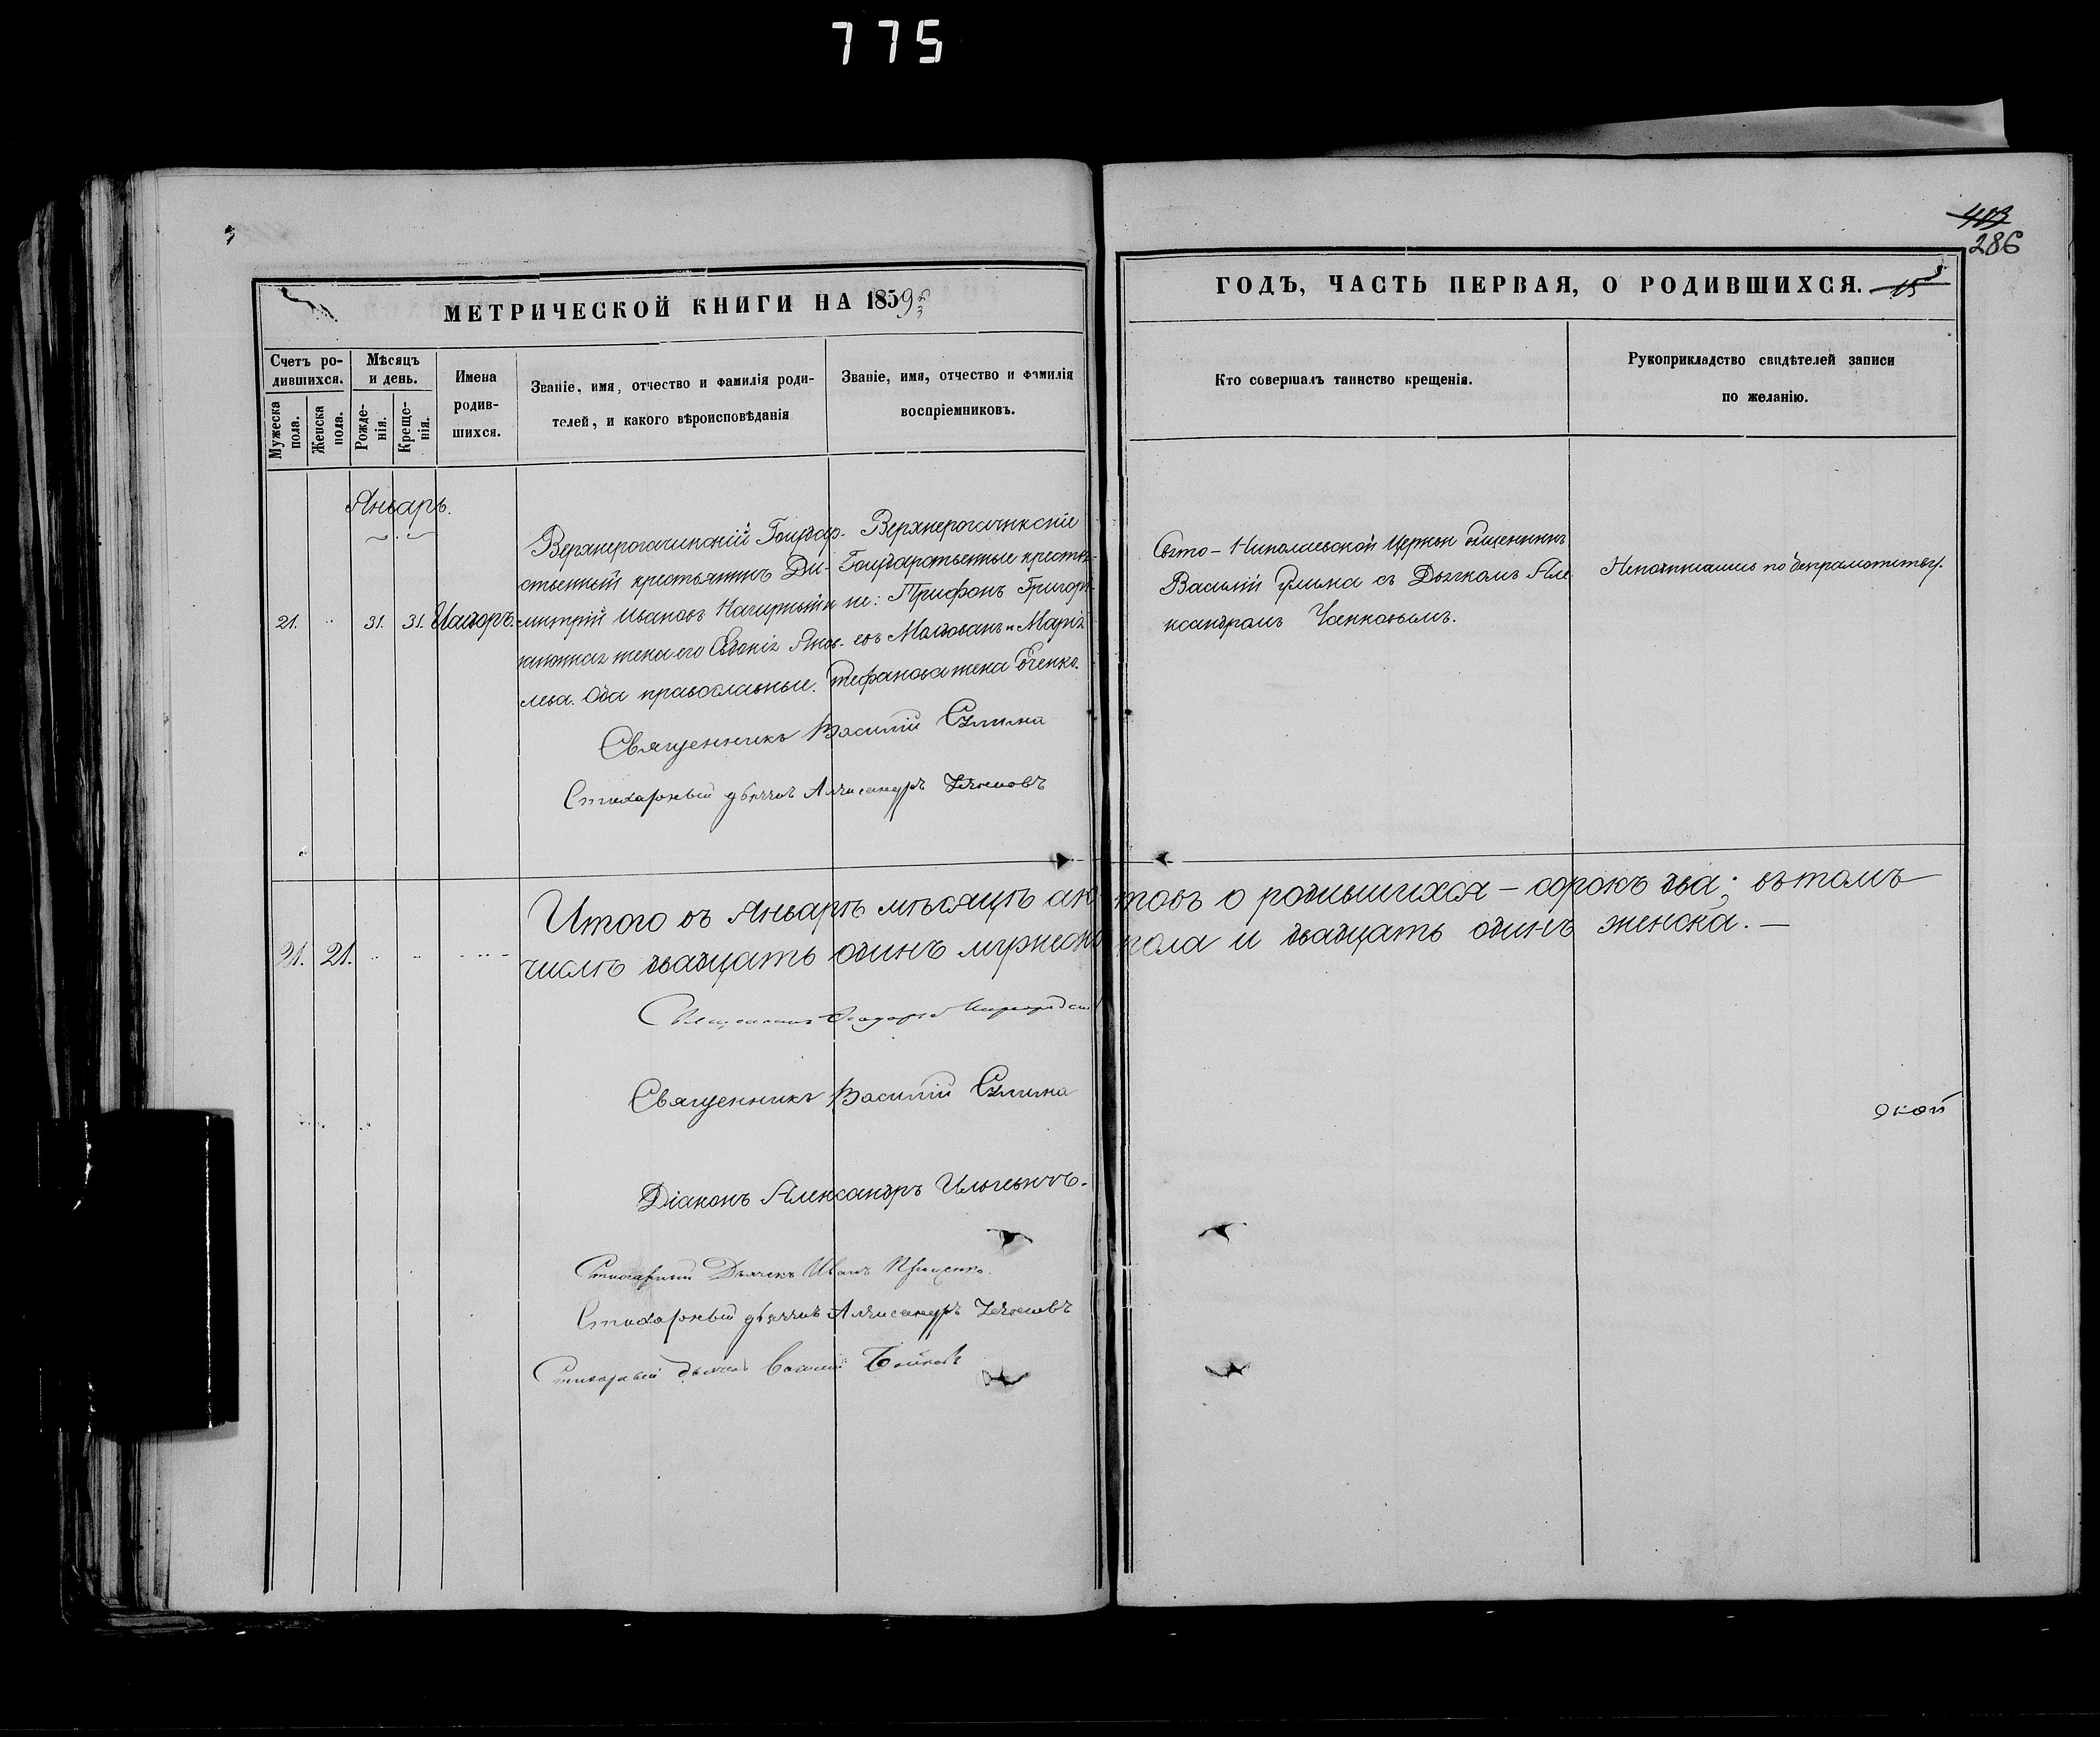 775
413
286
МЕТРИЧЕСКОЙ КНИГИ НА 1859
ГОДЪ, ЧАСТЬ ПЕРВАЯ, О РОДИВШИХСЯ. 15
Счетъ ро-
дившихся.
Мужеска
пола.
Женска
пола.
Мѣсяцъ
и день.
Рожде-
нія.
Креще-
нія.
Имена
родив-
шихся.
Званіе, имя, отчество и фамилія роди-
телей, и какого вѣроисповѣданія
Званіе, имя, отчество и фамилія
воспріемниковъ.
Кто совершалъ таинство крещенія.
Рукоприкладство свидѣтелей записи
по желанію.
Январь.
21. 31. 31. Исидоръ.
Верхнерогачикскій Государ-
ственный крестьянинъ Ди-
митрій Ивановъ и за-
конная жена его Евдокія Яков-
лева. Оба православные.
Верхнерогачикскіе
Государственные крестья-
не: Трифонъ Григорь-
евъ Молдованъ и Марія
Стефанова жена
Свято-Николаевской Церкви Священникъ
Василій Сулима съ Дьячкомъ Але
ксандромъ
Неподписались по безграмотству.
Священникъ Василій Сулима
Стихарный дьячекъ Александръ
Итого въ Январѣ мѣсяцѣ актовъ о родившихся – сорокъ два; въ томъ
21. 21. числѣ двадцать одинъ мужеска пола и двадцать одинъ женска. –
Священникъ Ѳеодоръ
Священникъ Василій Сулима
Діаконъ Александръ Ильяевичъ.
Стихарный Дьячекъ Иванъ
Стихарный дьячекъ Александръ
Стихарный дьячекъ Василій Бойковъ